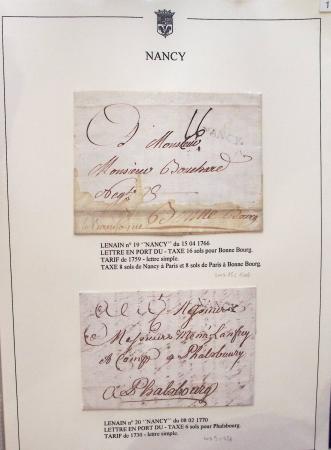 1
NANCY
16
A Monsieur
Monsieur Bouchard
Negt
LENAIN n° 19 "NANCY" du 15 04 1766
LETTRE EN PORT DU - TAXE 16 sols pour Bonne Bourg.
TARIF de 1759 - lettre simple.
TAXE 8 sols de Nancy à Paris et 8 sols de Paris à Bonne Bourg.
Messieurs
Messieurs
et Comp à Phalsbourg
à Phalsbourg
LENAIN n° 20 "NANCY" du 08 02 1770
LETTRE EN PORT DU - TAXE 6 sols pour Phalsbourg.
TARIF de 1759 - lettre simple.